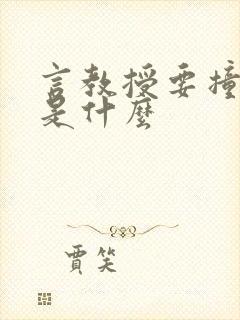 言教授要撞
是什麼
賈笑